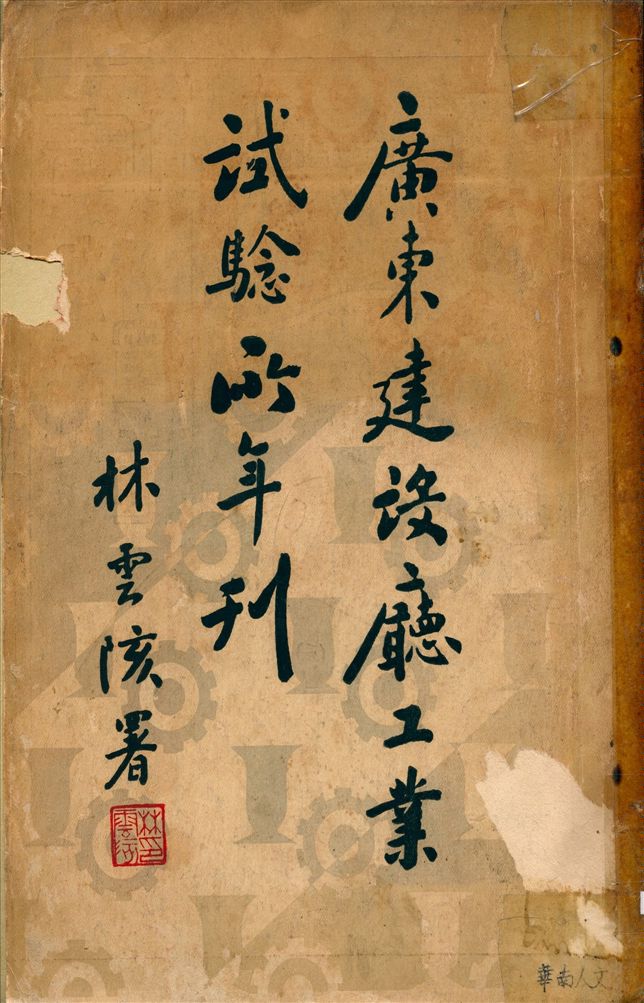 廣東建設廳工業
試驗所年刊
林雲陔署
林雲陔印
華南人文